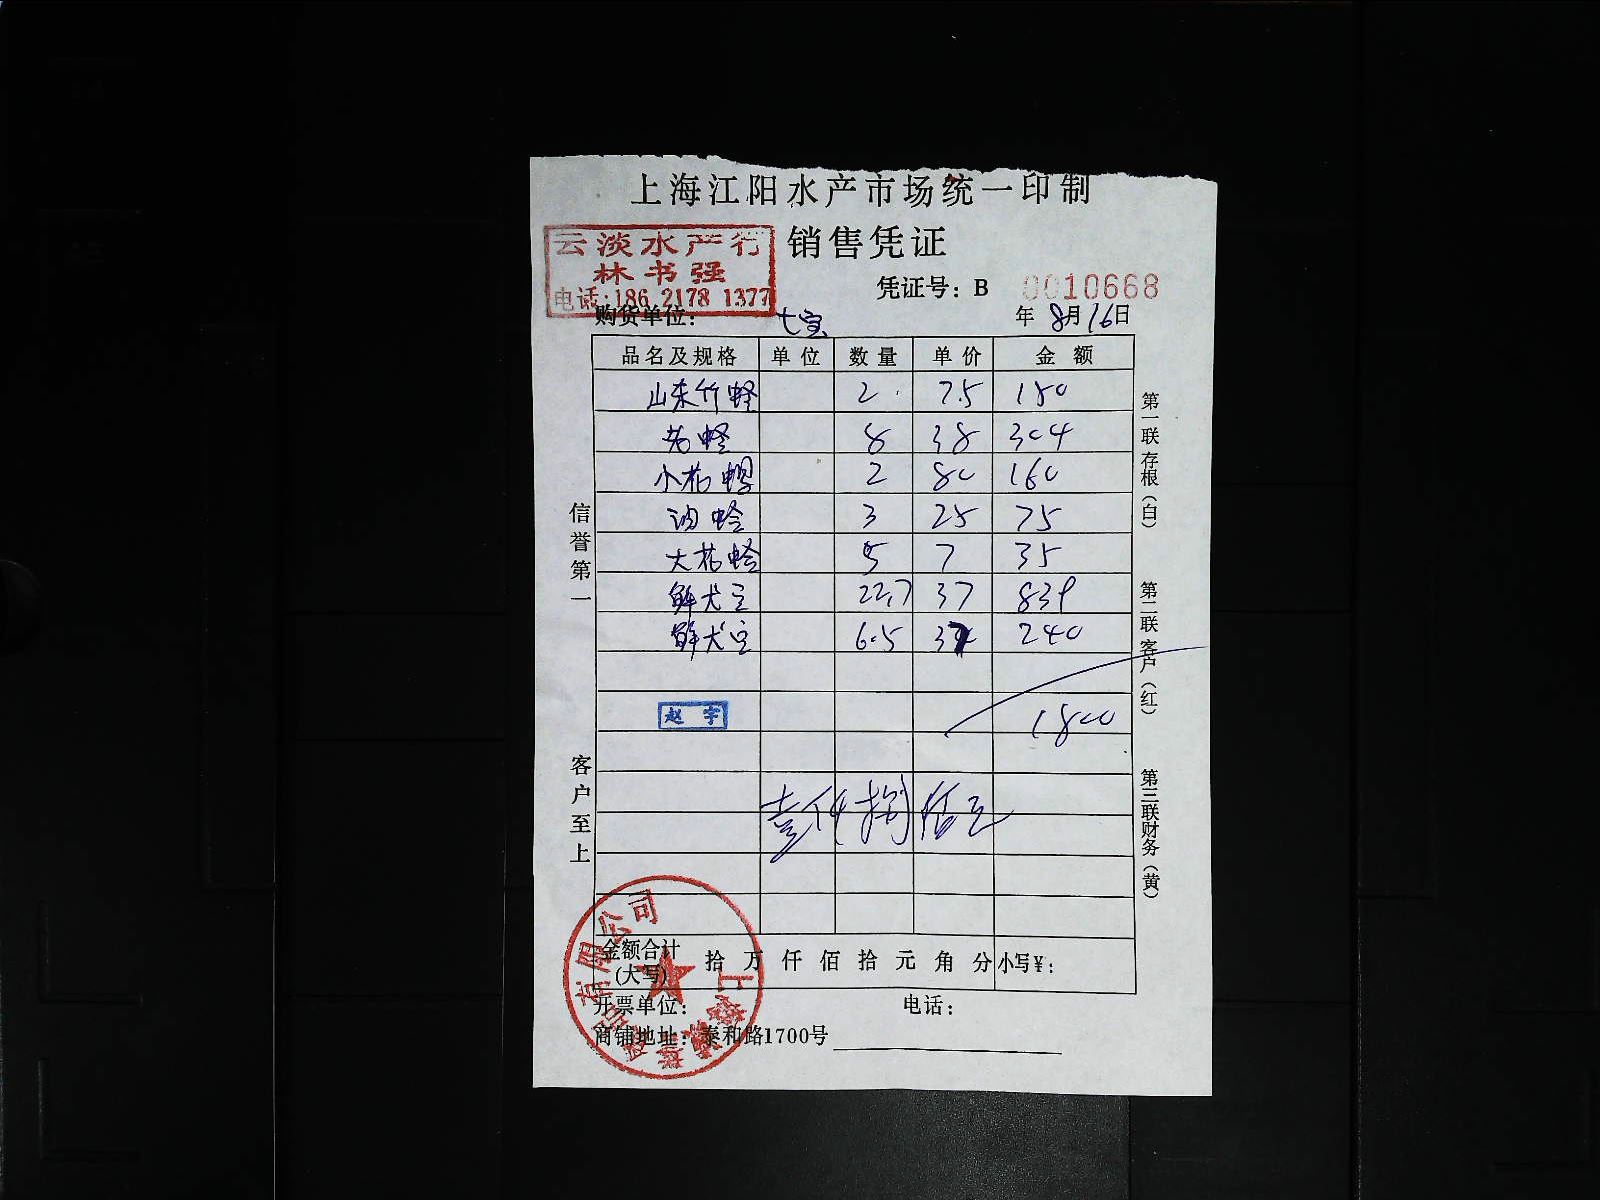 上海江阳水产市场统一印制
销售凭证
云淡水产行
林书强
电话:186 2178 1377
凭证号：B 0010668
购货单位： 七宝 年 8月16日
品名及规格 单位 数量 单价 金额
山东竹蛏 2 75 150
8 38 304
小花螺 2 80 160
油蛤 3 25 75
大花蛤 5 7 35
鲜犬豆 22.7 37 839
鲜犬豆 6.5 37 240
赵宇 1800
壹仟捌佰元
金额合计(大写) 拾 万 仟 佰 拾 元 角 分 小写¥：
开票单位： 电话：
商铺地址：泰和路1700号
信誉第一
客户至上
第一联存根（白）
第二联客户（红）
第三联财务（黄）
有限公司
上海